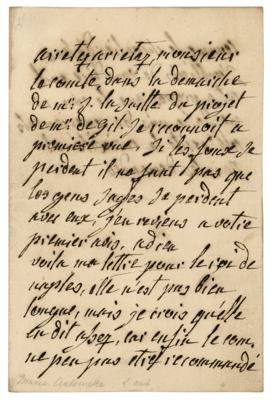 arretéz arretez, monsieur
le comte, dans la demarche
de mr. J. la suille du projet
de mr. de Gil. Je reconnoit a
premiere vue. Si les foux se
perdent il ne faut pas que
les gens sages se perdent
avec eux j'en reviens a votre
premier avis. adieu
voila ma lettre pour le roi de
naples, elle n'est pas bien
longue, mais je crois quelle
en dit assez, car enfin le com.
ne peu pas etre recommandé